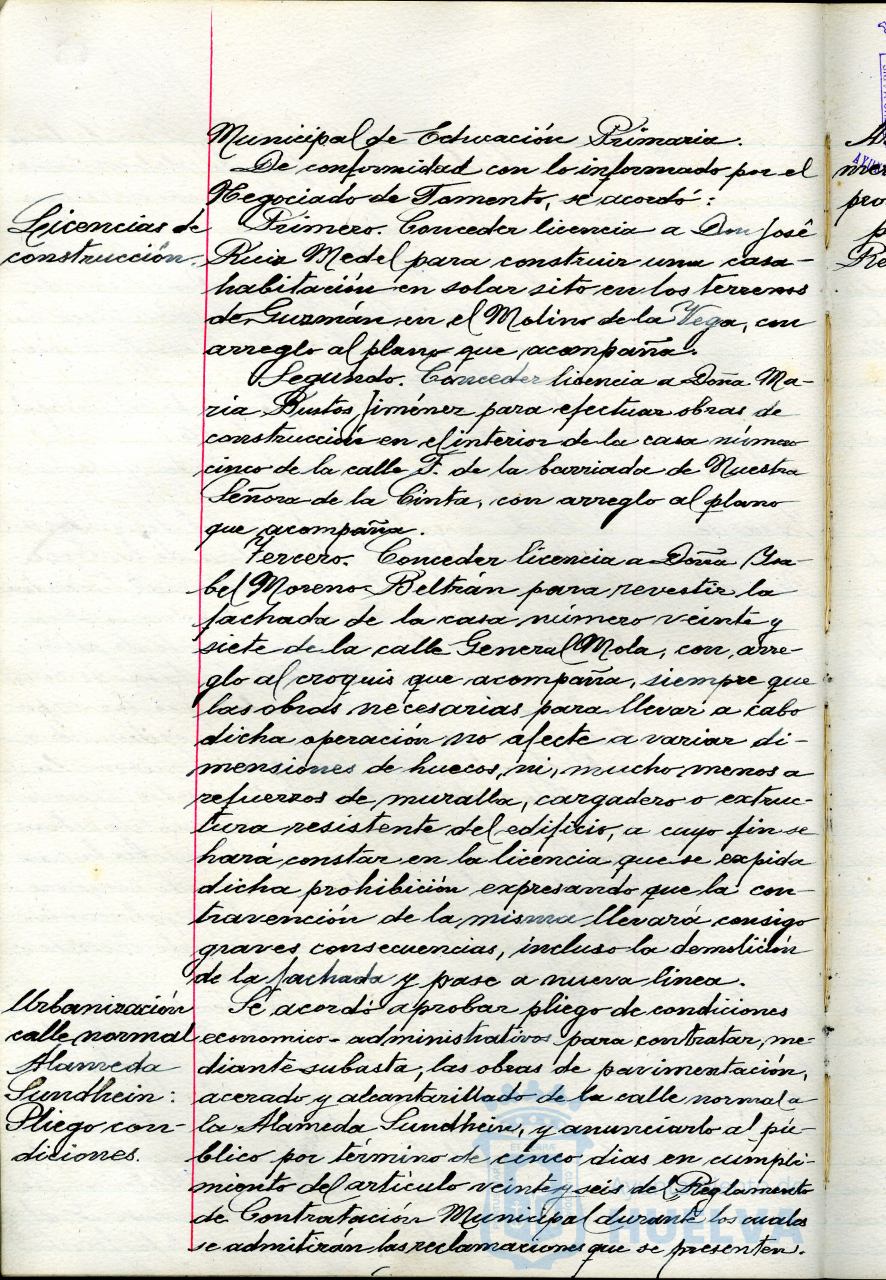 Municipal de Educación Primaria.
De conformidad con lo informado por el
Negociado de Fomento, se acordó:
Licencias de
construcción.
Primero. Conceder licencia a Don José
Ruiz Medel para construir una casa-
habitación en solar sito en los terrenos
de Guzmán en el Molino de la Vega, con
arreglo al plano que acompaña.
Segundo. Conceder licencia a Doña Ma-
ría Bustos Jiménez para efectuar obras de
construcción en el interior de la casa número
cinco de la calle F. de la barriada de Nuestra
Señora de la Cinta, con arreglo al plano
que acompaña.
Tercero. Conceder licencia a Doña Isa-
bel Moreno Beltrán para revestir la
fachada de la casa número veinte y
siete de la calle General Mola, con arre-
glo al croquis que acompaña, siempre que
las obras necesarias para llevar a cabo
dicha operación no afecte a variar di-
mensiones de huecos, ni, mucho menos a
refuerzos de muralla, cargadero o extruc-
tura resistente del edificio, a cuyo fin se
hará constar en la licencia que se expida
dicha prohibición expresando que la con-
travención de la misma llevará consigo
graves consecuencias, incluso la demolición
de la fachada y pase a nueva línea.
Urbanización
calle normal
Alameda
Sundhein:
Pliego con-
diciones.
Se acordó aprobar pliego de condiciones
economico-administrativos para contratar, me-
diante subasta, las obras de pavimentación,
acerado y alcantarillado de la calle normal a
la Alameda Sundhein, y anunciarlo al pú-
blico por término de cinco dias en cumpli-
miento del artículo veinte y seis del Reglamento
de Contratación Municipal durante los cuales
se admitirán las reclamaciones que se presenten.
Ayuntamiento de
HUELVA